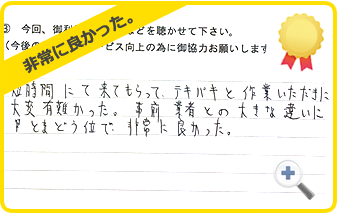 非常に良かった。
③ 今回、御利
などを聴かせて下さい。
(今後の
ービス向上の為に御協力お願いします
短時間にて来てもらって、テキパキと作業いただきに
大変有難かった。事前業者との大きな違いに
戸とまどう位で非常に良かった。